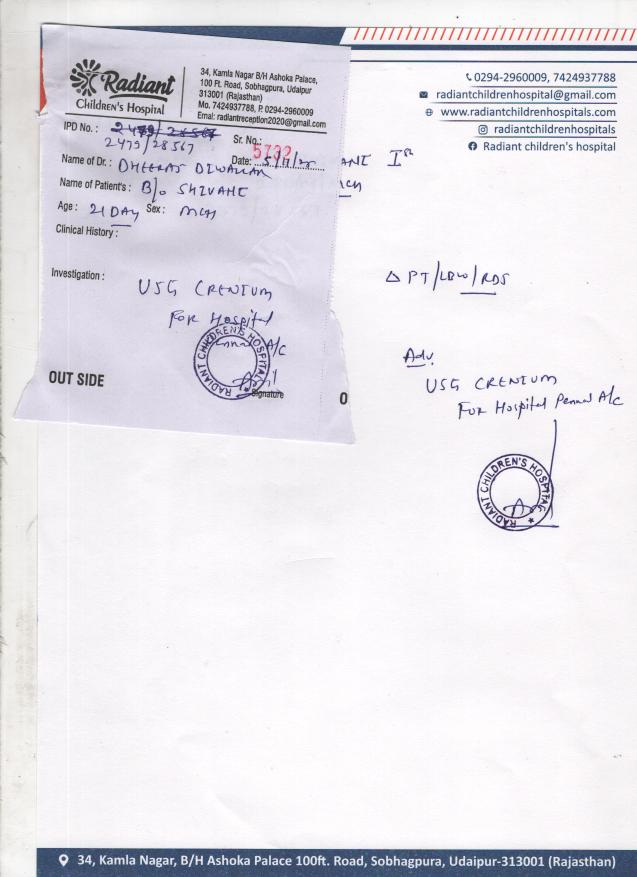 Radiant
Children's Hospital
34, Kamla Nagar B/H Ashoka Palace,
100 Ft. Road, Sobhagpura, Udaipur
313001 (Rajasthan)
Mo. 7424937788, P. 0294-2960009
Email: radiantreception2020@gmail.com
IPD No. : 2479/28567
2479/28567
Sr. No.: 5732
Name of Dr. : DHEERAJ DIWAKAR Date: 5/11/25
Name of Patient's : B/o SHIVANE
Age : 21 DAY Sex : MCH
Clinical History :
Investigation :
USG CRENIUM
FOR Hospital
A/C
RADIANT CHILDREN'S HOSPITAL
Signature
OUT SIDE
0294-2960009, 7424937788
radiantchildrenhospital@gmail.com
www.radiantchildrenhospitals.com
radiantchildrenhospitals
Radiant children's hospital
ANE Ist
Δ PT/LBW/RDS
Adv.
USG CRENIUM
FOR Hospital Pannel A/C
RADIANT CHILDREN'S HOSPITAL
34, Kamla Nagar, B/H Ashoka Palace 100ft. Road, Sobhagpura, Udaipur-313001 (Rajasthan)